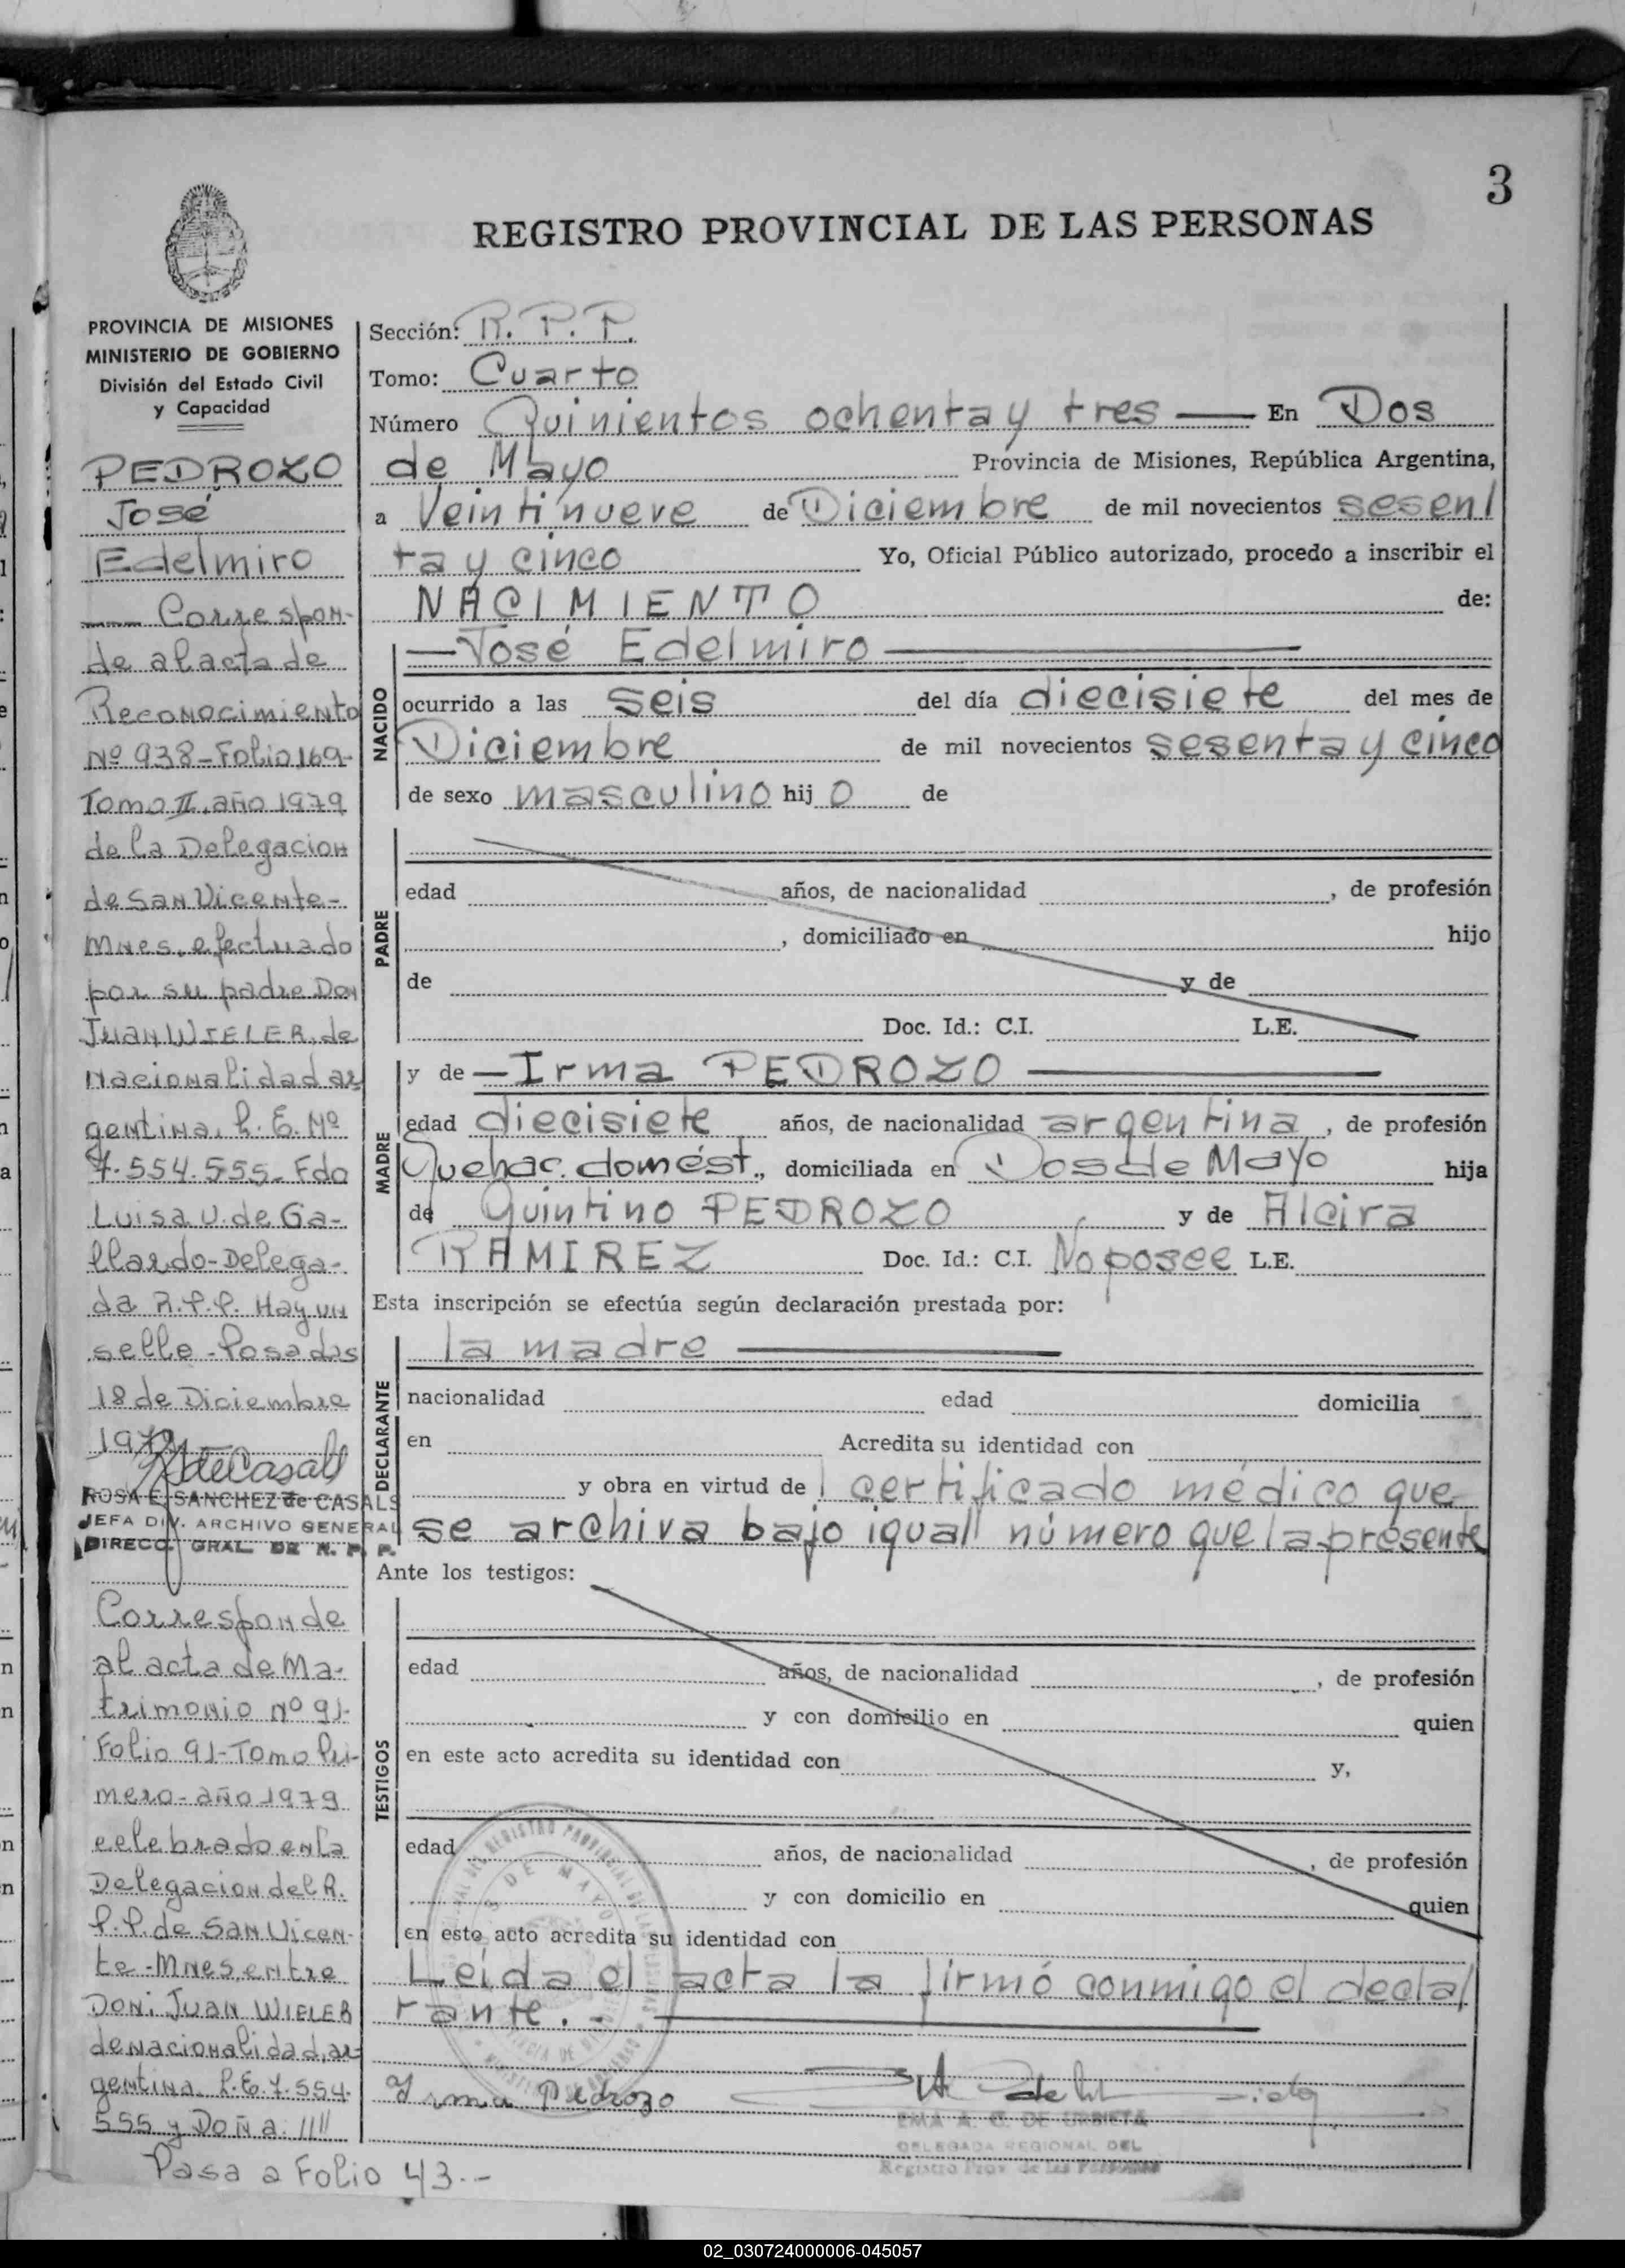 3
REGISTRO PROVINCIAL DE LAS PERSONAS
PROVINCIA DE MISIONES
MINISTERIO DE GOBIERNO
División del Estado Civil
y Capacidad
PEDROZO
José
Edelmiro
Correspon-
de al acta de
Reconocimiento
Nº 938-Folio 169-
Tomo II, año 1979
de la Delegacion
de San Vicente-
Mnes, efectuado
por su padre Don
Juan WIELER, de
nacionalidad ar-
gentina, L.E. Nº
7.554.555- Fdo
Luisa U. de Ga-
llardo-Delega-
da R.P.P. Hay un
sello-Posadas
18 de Diciembre
1979
ROSA E. SANCHEZ de CASALS
JEFA DIV. ARCHIVO GENERAL
DIRECC. GRAL. DE R. P. P.
Corresponde
al acta de Ma-
trimonio nº 91-
Folio 91-Tomo Pri-
mero-año 1979
celebrado en la
Delegacion del R.
P.P. de San Vicen-
te-Mnes, entre
Don: Juan WIELER
de nacionalidad, ar-
gentina, L.E. 7.554.
555 y Doña. ////
Pasa a Folio 43.-
Sección: R. P. P.
Tomo: Cuarto
Número Quinientos ochenta y tres En Dos
de Mayo Provincia de Misiones, República Argentina,
a Veintinueve de Diciembre de mil novecientos sesen/
ta y cinco Yo, Oficial Público autorizado, procedo a inscribir el
NACIMIENTO de:
NACIDO
—José Edelmiro—
ocurrido a las seis del día diecisiete del mes de
Diciembre de mil novecientos sesenta y cinco
de sexo masculino hijo de
PADRE
edad años, de nacionalidad , de profesión
, domiciliado en hijo
de y de
Doc. Id.: C.I. L.E.
MADRE
y de —Irma PEDROZO—
edad diecisiete años, de nacionalidad argentina, de profesión
Quehac. domést., domiciliada en Dos de Mayo hija
de Quintino PEDROZO y de Alcira
RAMIREZ Doc. Id.: C.I. No posee L.E.
Esta inscripción se efectúa según declaración prestada por:
DECLARANTE
la madre
nacionalidad edad domicilia
en Acredita su identidad con
y obra en virtud de / certificado médico que
se archiva bajo igual/ número que la presente
Ante los testigos:
TESTIGOS
edad años, de nacionalidad , de profesión
y con domicilio en quien
en este acto acredita su identidad con y,
edad años, de nacionalidad , de profesión
y con domicilio en quien
en este acto acredita su identidad con
Leída el acta la firmó conmigo el decla/
rante.-
Irma Pedrozo
EMA A. C. DE URBIETA
DELEGADA REGIONAL DEL
Registro Prov. de las Personas
02_030724000006-045057